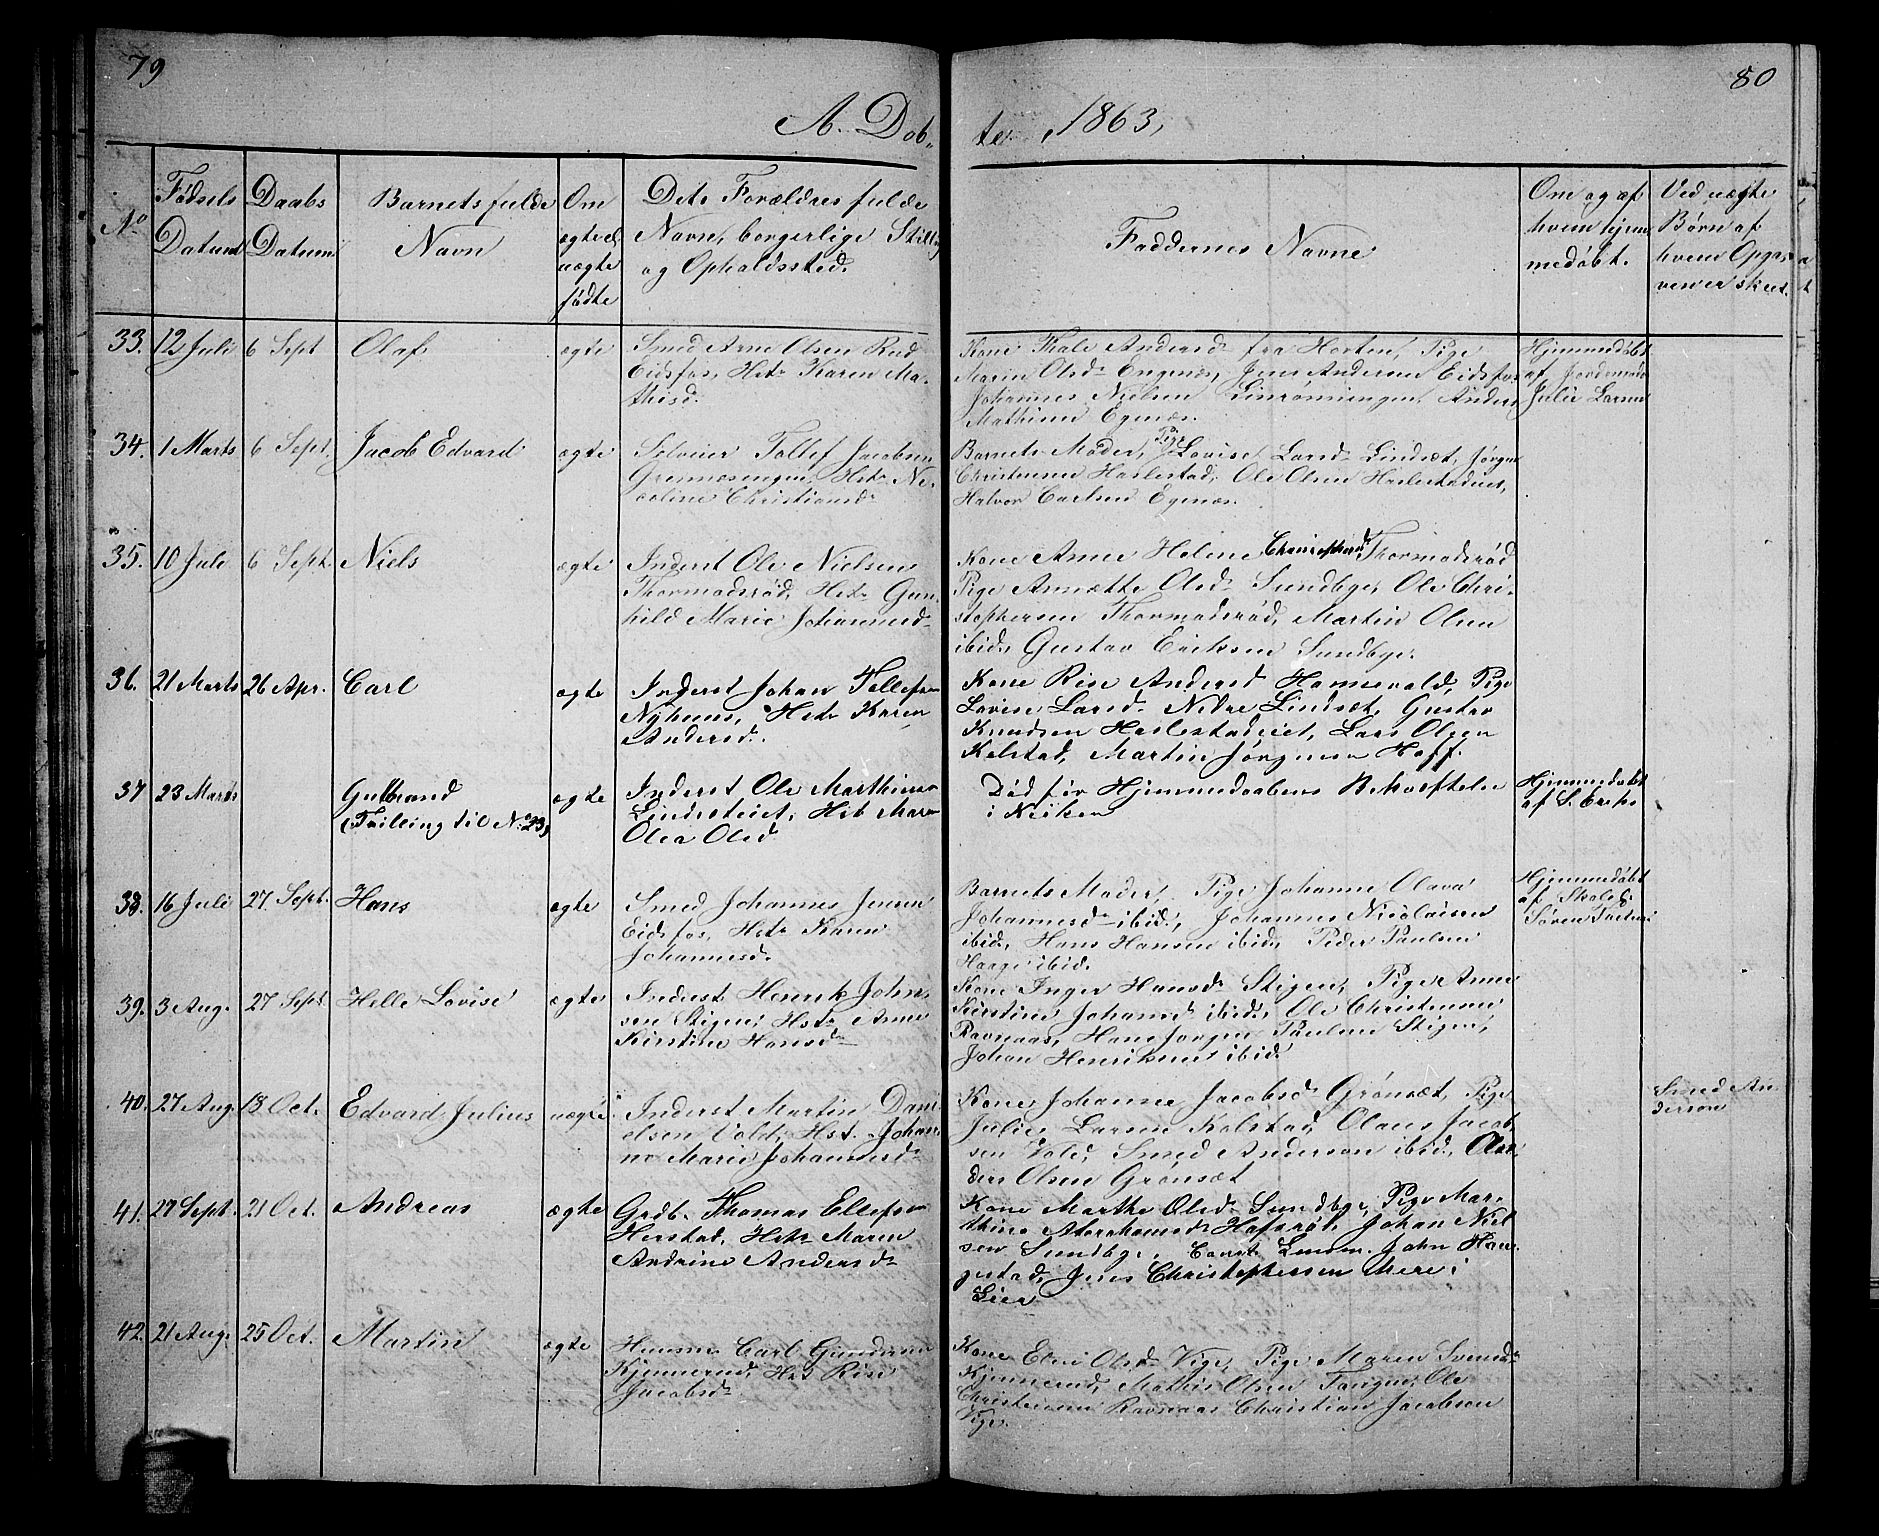 79
80
A. Døb„
te, 1863,
No
Fødsels
Datum
Daabs
Datum
Barnets fulde
Navn
Om
ægte el.
uægte
fødte
Dets Forældres fulde
Navn, borgerlige Stilling
og Opholdssted.
Faddernes Navne
Om og af
hvem hjem
medøbt.
Ved uægte
Børn af
hvem Opga,
ven er skeet.
33. 12 Juli 6 Sept Olaf ægte
Smed Arne Olsen Rud
Eidsfos, Hstr Karen Ma-
thisd.
Kone Thale Andersdr fra Horten, Pige
Maria Olsdr Engenæs, Jens Andersen Eidsfos
Johannes Nielsen Linrømningen, Anders
Mathisen Egenæs.
Hjemmedøbt
af Jordemoder
Julie Larsen
34. 1 Marts 6 Sept. Jacob Edvard ægte
Selveier Tollef Jacobsen
Grennesingen, Hstr Ni-
coline Christiansdr
Barnets Moder, Pige Lovise Larsdr Lindsæt, Jørgen
Christensen Haslestad, Ole Olsen Haslestadeiet,
Halvor Carlsen Egenæs.
35. 10 Juli 6 Sept. Niels ægte
Inderst Ole Nielsen
Thormodsrød, Hstr Gun-
hild Marie Johannesdr
Kone Anne Helene Christophersdr Thormodsrød
Pige Annette Olsdr Sundbye, Ole Chri-
stophersen Thormodsrød, Martin Olsen
ibid, Gustav Eriksen Sundbye.
36. 21 Marts 26 Apr. Carl ægte
Inderst Johan Tollefsen
Nyhuus, Hstr Karen
Andersd.
Kone Rise Andersd Hannevold, Pige
Lovise Larsdr Nedre Lindsæt, Gustav
Knudsen Haslestadeiet, Lars Olsen
Kelstad, Martin Jørgensen Hoff.
37 23 Marts Gulbrand ægte
(Tvilling til No 23)
Inderst Ole Marthinsen
Lindseteiet, Hst Maren
Olea Olsd
Død før Hjemmedaabens Bekræftelse
i Kirken
Hjemmedøbt
af S.
38. 16 Juli 27. Sept. Hans ægte
Smed Johannes Jensen
Eidsfos, Hstr Karen
Johannesd.
Barnets Moder, Pige Johanne Olava
Johannesdr ibid, Johannes Nicolaisen
ibid, Hans Hansen ibid, Peder Paulsen
Haage ibid.
Hjemmedøbt
af Skolel.
Søren
39. 3 Aug. 27 Sept. Helle Lovise ægte
Inderst Henrik John,
sen Stigen, Hstr Anne
Kirstine Hansdr
Kone Inger Hansdr Stigen, Pige Anne
Kirstine Johansd ibid, Ole Christensen
Ravnaas, Hans Jørgen Paulsen Stigen,
Johan Henriksen ibid.
40. 27 Aug. 18 Oct. Edvard Julius uægte
Inderst Martin Dani
elsen Vold, Hst. Johan
ne Marie Johannesdr
Kone Johanne Jacobsdr Grønsæt, Pige
Julie Larsen Kelstad, Olaus Jacob
sen Vold, Smed Anderson ibid,
Olsen Grønsæt
Smed An
derson
41. 27 Sept. 21 Oct. Andreas ægte
Grdb. Thomas Ellefsen
Herstad, Hstr Maren
Andrine Andersdr
Kone Marthe Olsdr Sundbye, Pige Mar,
thine Abrahamsdr Hafsrød, Johan Niel
sen Sundbye, John Hau
gestad, Jens Christophersen Mere i
Lier
42. 21 Aug. 25 Oct. Martin ægte
Huusm. Carl Gundersen
Kjennerud, Hst Rise
Jacobsdr
Kone Eli Olsdr Vige, Pige Maren Svendsdr
Kjennerud, Mathis Olsen Tangen, Ole
Christensen Ravnaas Christian Jacobsen
Vige.